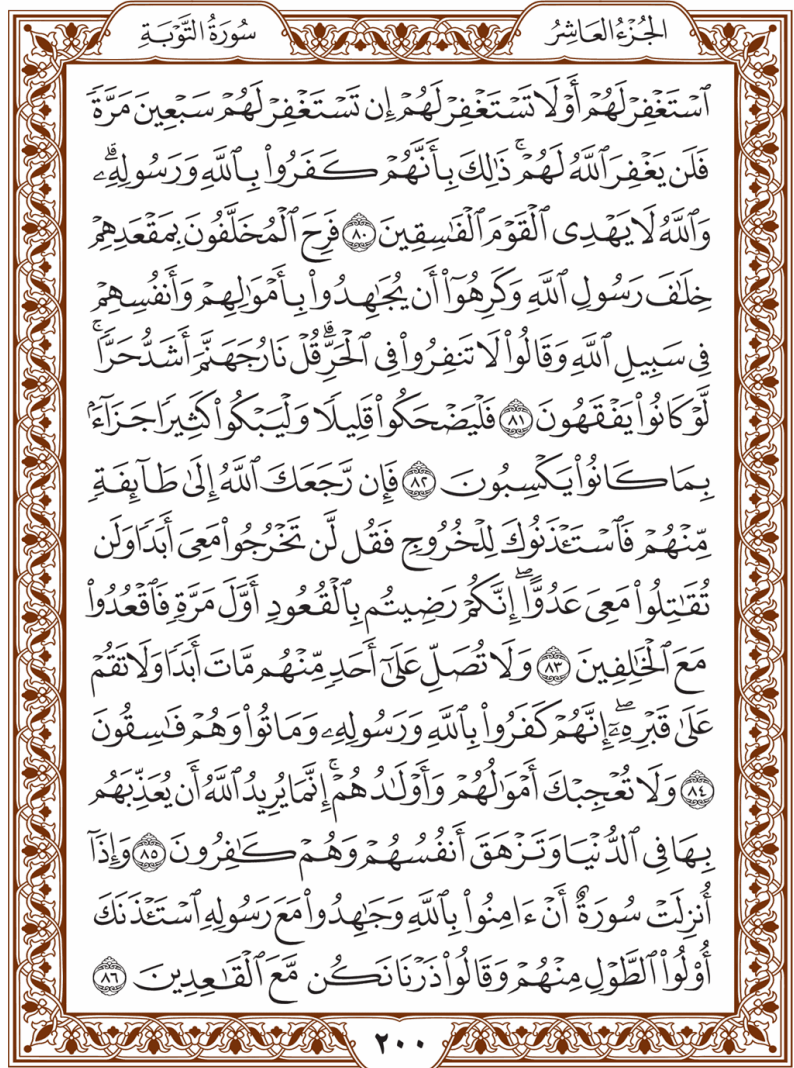 الجُزْءُ العَاشِرُ
سُورَةُ التَّوْبَةِ
ٱسْتَغْفِرْ لَهُمْ أَوْ لَا تَسْتَغْفِرْ لَهُمْ إِن تَسْتَغْفِرْ لَهُمْ سَبْعِينَ مَرَّةً
فَلَن يَغْفِرَ ٱللَّهُ لَهُمْۚ ذَٰلِكَ بِأَنَّهُمْ كَفَرُوا۟ بِٱللَّهِ وَرَسُولِهِۦۗ
وَٱللَّهُ لَا يَهْدِى ٱلْقَوْمَ ٱلْفَٰسِقِينَ ٨٠ فَرِحَ ٱلْمُخَلَّفُونَ بِمَقْعَدِهِمْ
خِلَٰفَ رَسُولِ ٱللَّهِ وَكَرِهُوٓا۟ أَن يُجَٰهِدُوا۟ بِأَمْوَٰلِهِمْ وَأَنفُسِهِمْ
فِى سَبِيلِ ٱللَّهِ وَقَالُوا۟ لَا تَنفِرُوا۟ فِى ٱلْحَرِّۗ قُلْ نَارُ جَهَنَّمَ أَشَدُّ حَرًّاۚ
لَّوْ كَانُوا۟ يَفْقَهُونَ ٨١ فَلْيَضْحَكُوا۟ قَلِيلًا وَلْيَبْكُوا۟ كَثِيرًا جَزَآءًۢ
بِمَا كَانُوا۟ يَكْسِبُونَ ٨٢ فَإِن رَّجَعَكَ ٱللَّهُ إِلَىٰ طَآئِفَةٍ
مِّنْهُمْ فَٱسْتَـْٔذَنُوكَ لِلْخُرُوجِ فَقُل لَّن تَخْرُجُوا۟ مَعِىَ أَبَدًا وَلَن
تُقَٰتِلُوا۟ مَعِىَ عَدُوًّاۖ إِنَّكُمْ رَضِيتُم بِٱلْقُعُودِ أَوَّلَ مَرَّةٍ فَٱقْعُدُوا۟
مَعَ ٱلْخَٰلِفِينَ ٨٣ وَلَا تُصَلِّ عَلَىٰٓ أَحَدٍ مِّنْهُم مَّاتَ أَبَدًا وَلَا تَقُمْ
عَلَىٰ قَبْرِهِۦٓۖ إِنَّهُمْ كَفَرُوا۟ بِٱللَّهِ وَرَسُولِهِۦ وَمَاتُوا۟ وَهُمْ فَٰسِقُونَ
٨٤ وَلَا تُعْجِبْكَ أَمْوَٰلُهُمْ وَأَوْلَٰدُهُمْۚ إِنَّمَا يُرِيدُ ٱللَّهُ أَن يُعَذِّبَهُم
بِهَا فِى ٱلدُّنْيَا وَتَزْهَقَ أَنفُسُهُمْ وَهُمْ كَٰفِرُونَ ٨٥ وَإِذَآ
أُنزِلَتْ سُورَةٌ أَنْ ءَامِنُوا۟ بِٱللَّهِ وَجَٰهِدُوا۟ مَعَ رَسُولِهِ ٱسْتَـْٔذَنَكَ
أُو۟لُوا۟ ٱلطَّوْلِ مِنْهُمْ وَقَالُوا۟ ذَرْنَا نَكُن مَّعَ ٱلْقَٰعِدِينَ ٨٦
٢٠٠